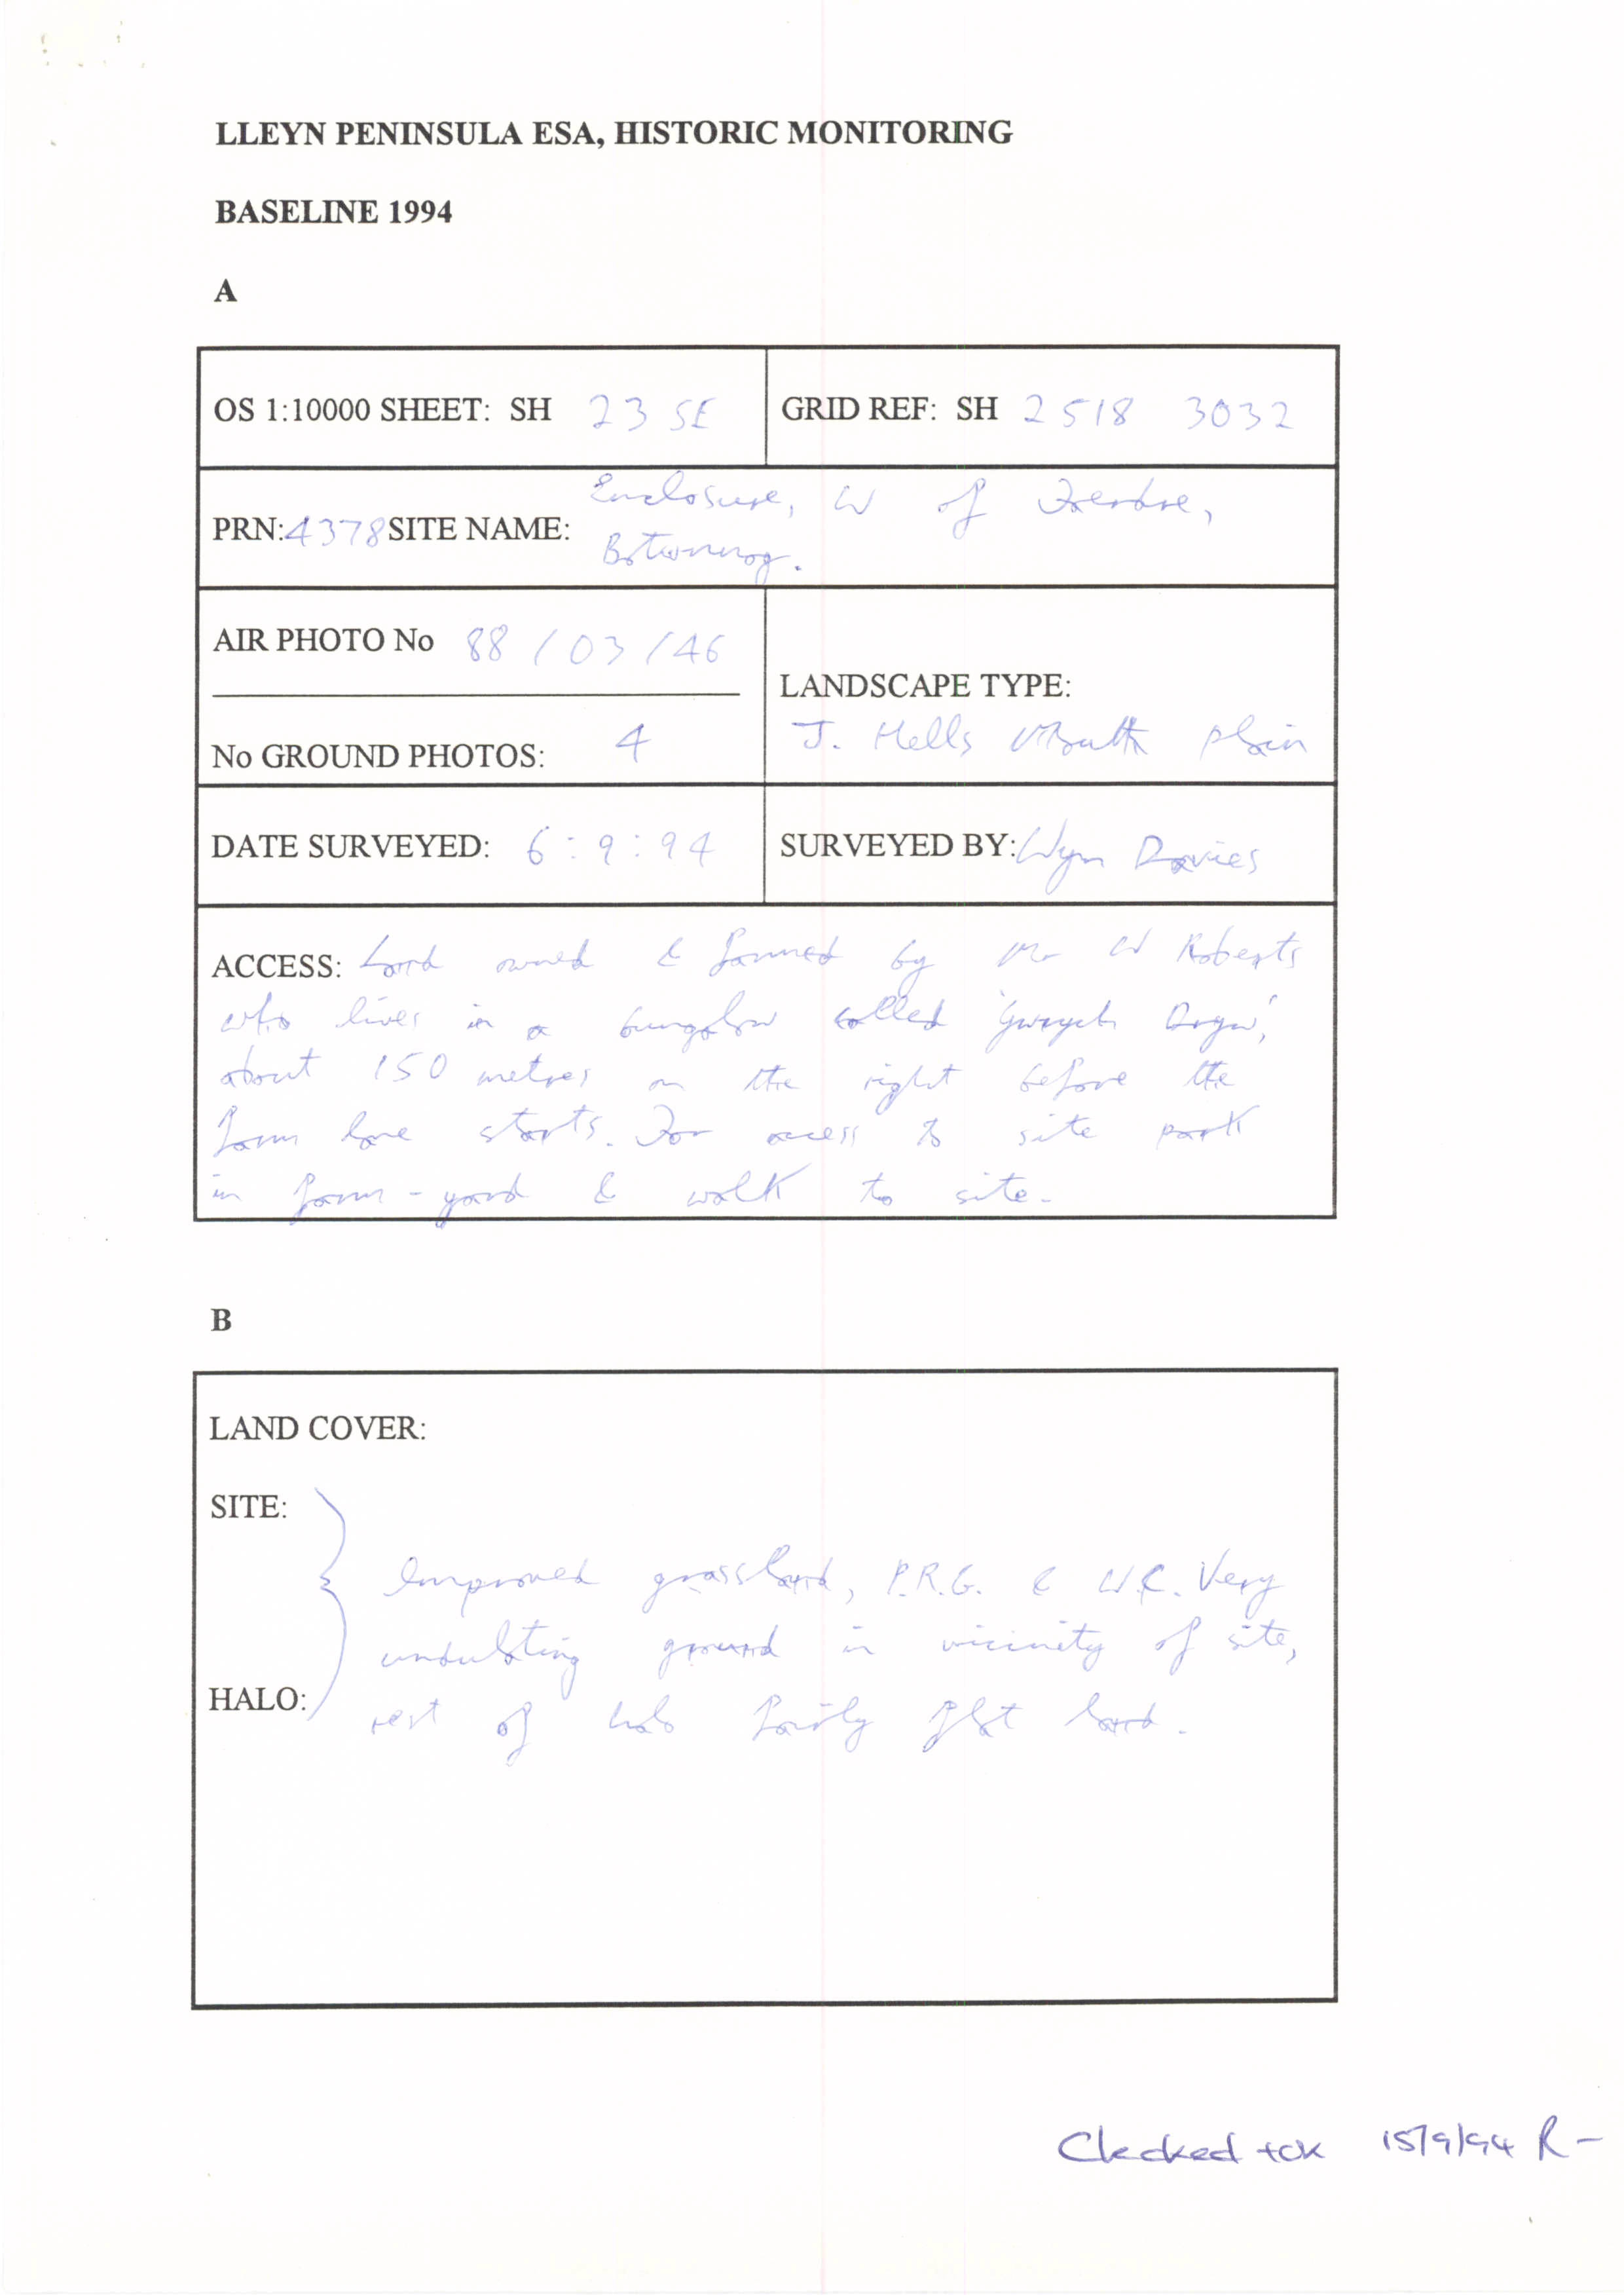 LLEYN PENINSULA ESA, HISTORIC MONITORING
BASELINE 1994
A
OS 1:10000 SHEET: SH 23 SE
GRID REF: SH 2518 3032
PRN: 4378 SITE NAME: Enclosure, W of Trerdre,
Botwnnog.
AIR PHOTO No 88/03/46
No GROUND PHOTOS: 4
LANDSCAPE TYPE:
J. Hells Mouth plain
DATE SURVEYED: 6:9:94
SURVEYED BY: Wyn Davies
ACCESS: Land owned & farmed by Mr W Roberts
who lives in a bungalow called
about 150 metres on the right before the
farm lane starts. For access to site park
in farm-yard & walk to site.
B
LAND COVER:
SITE:
Improved grassland, P.R.G. & W.C. Very
undulating ground in vicinity of site,
HALO:
rest of halo fairly flat land.
Checked + ok 15/9/94 R-